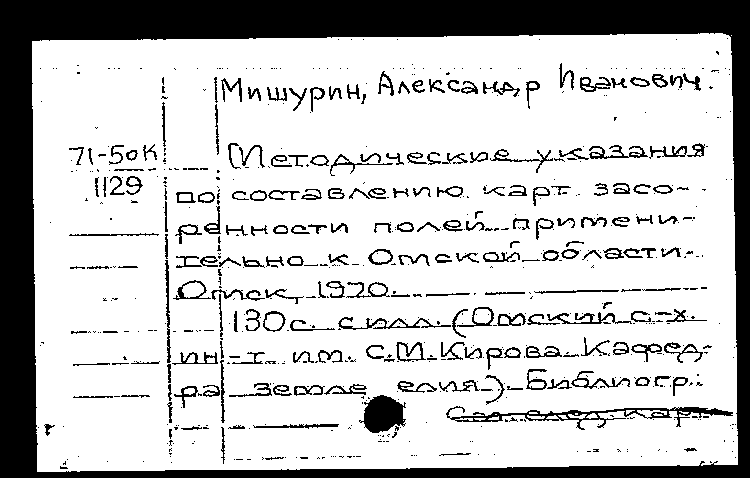 Мишурин, Александр Иванович.
71-5ок Методические указания
1129 по составлению карт засо-
ренности полей примени-
тельно к Омской области.-
Омск, 1970.
130с. с илл. (Омский с.-х.
ин-т им. С.М. Кирова. Кафед-
ра земле елия). Библиогр.:
См. след. карт